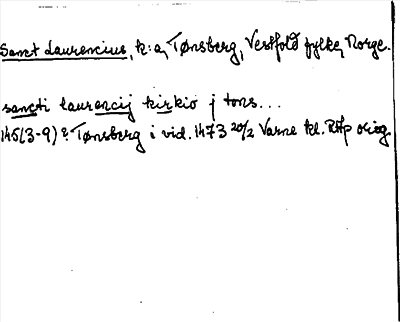 Sanct Laurencius, k:a, Tønsberg, Vestfold fylke, Norge.
sancti laurencij kirkio j tons...
145(3-9)? Tønsberg i vid. 1473 20/2 Varne kl. RAp orig.